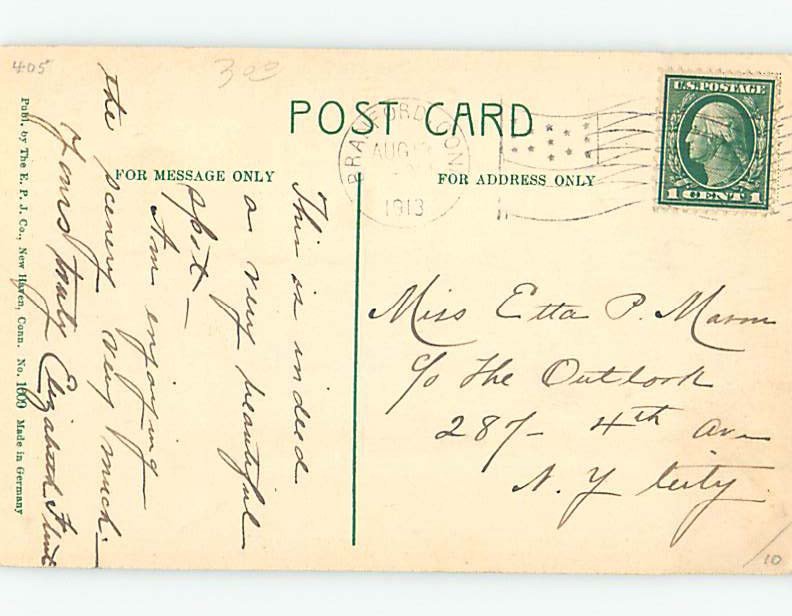 405
3 00
POST CARD
BRANFORD CONN
AUG
1913
U.S. POSTAGE
1 CENT 1
FOR MESSAGE ONLY
FOR ADDRESS ONLY
This is indeed
a very beautiful
spot —
Am enjoying
the scenery very much. —
Yours truly Elizabeth
Miss Etta P.
c/o The Outlook
287 — 4th Ave
N. Y City
Publ. by The E. P. J. Co., New Haven, Conn. No. 1609 Made in Germany
10